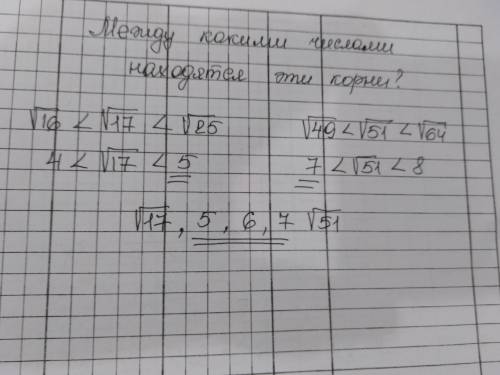 Между какими числами
находятся эти корни?
√16 < √17 < √25 √49 < √51 < √64
4 < √17 < 5 7 < √51 < 8
√17, 5, 6, 7 √51